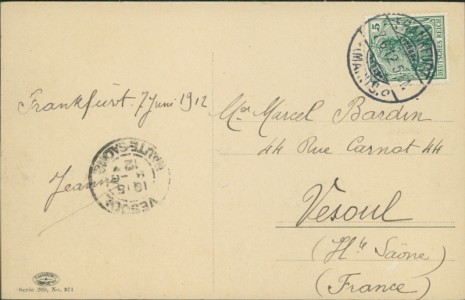 Frankfurt. 7 Juni 1912
Jeanne
Mr Marcel Bardin
44 Rue Carnot 44
Vesoul
(Hte Saône)
(France)
5
DEUTSCHES REICH
VESOUL
HAUTE-SAONE
Serie 269, No. 871